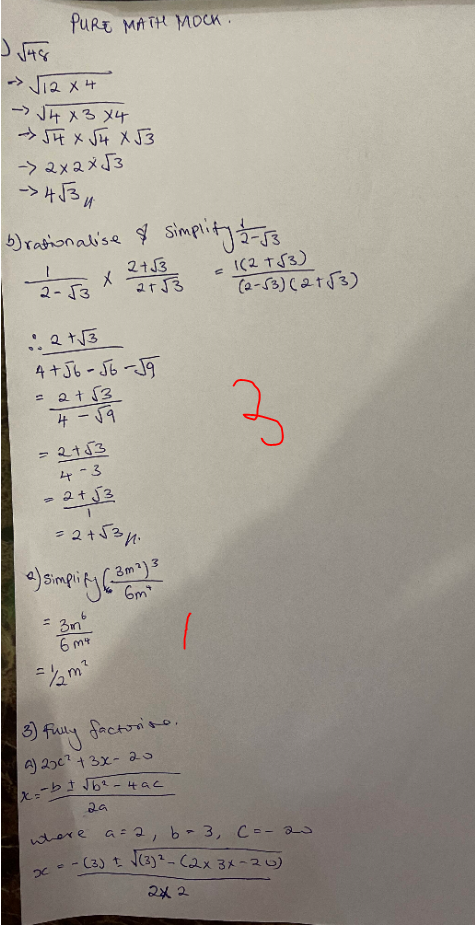 PURE MATH MOCK.
) √48
→ √12 × 4
→ √4 × 3 × 4
→ √4 × √4 × √3
→ 2 × 2 × √3
→ 4√3 //
b) rationalise & simplify 1/2-√3
1/2-√3 × 2+√3/2+√3 = 1(2+√3)/(2-√3)(2+√3)
∴ 2+√3/4+√6-√6-√9
3
= 2+√3/4-√9
= 2+√3/4-3
= 2+√3/1
= 2+√3 //.
2) simplify (3m²)³/6m⁴
= 3m⁶/6m⁴
1
= 1/2 m²
3) Fully factorise.
a) 2x² + 3x - 20
x = -b ± √b² - 4ac/2a
where a = 2, b = 3, C = - 20
x = -(3) ± √(3)² - (2 × 3 × -20)/2 × 2